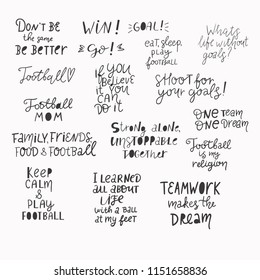 DON'T BE
the same
BE BETTER
WIN!
& Go!
GOAL!
eat, sleep,
play
football
What's
life without
goals?
Football
If you
believe
in it you
can
do it
Shoot for
your goals!
Football
MOM
ONE TEAM
ONE Dream
FAMILY, FRIENDS,
FOOD & FOOTBALL
Strong alone,
UNSTOPPABLE
TOGETHER
Football
is my
religion
KEEP
CALM
&
PLAY
FOOTBALL
I LEARNED
ALL ABOUT
LIFE
with a BALL
at my feet
TEAMWORK
makes the
DREAM
www.shutterstock.com · 1151658836